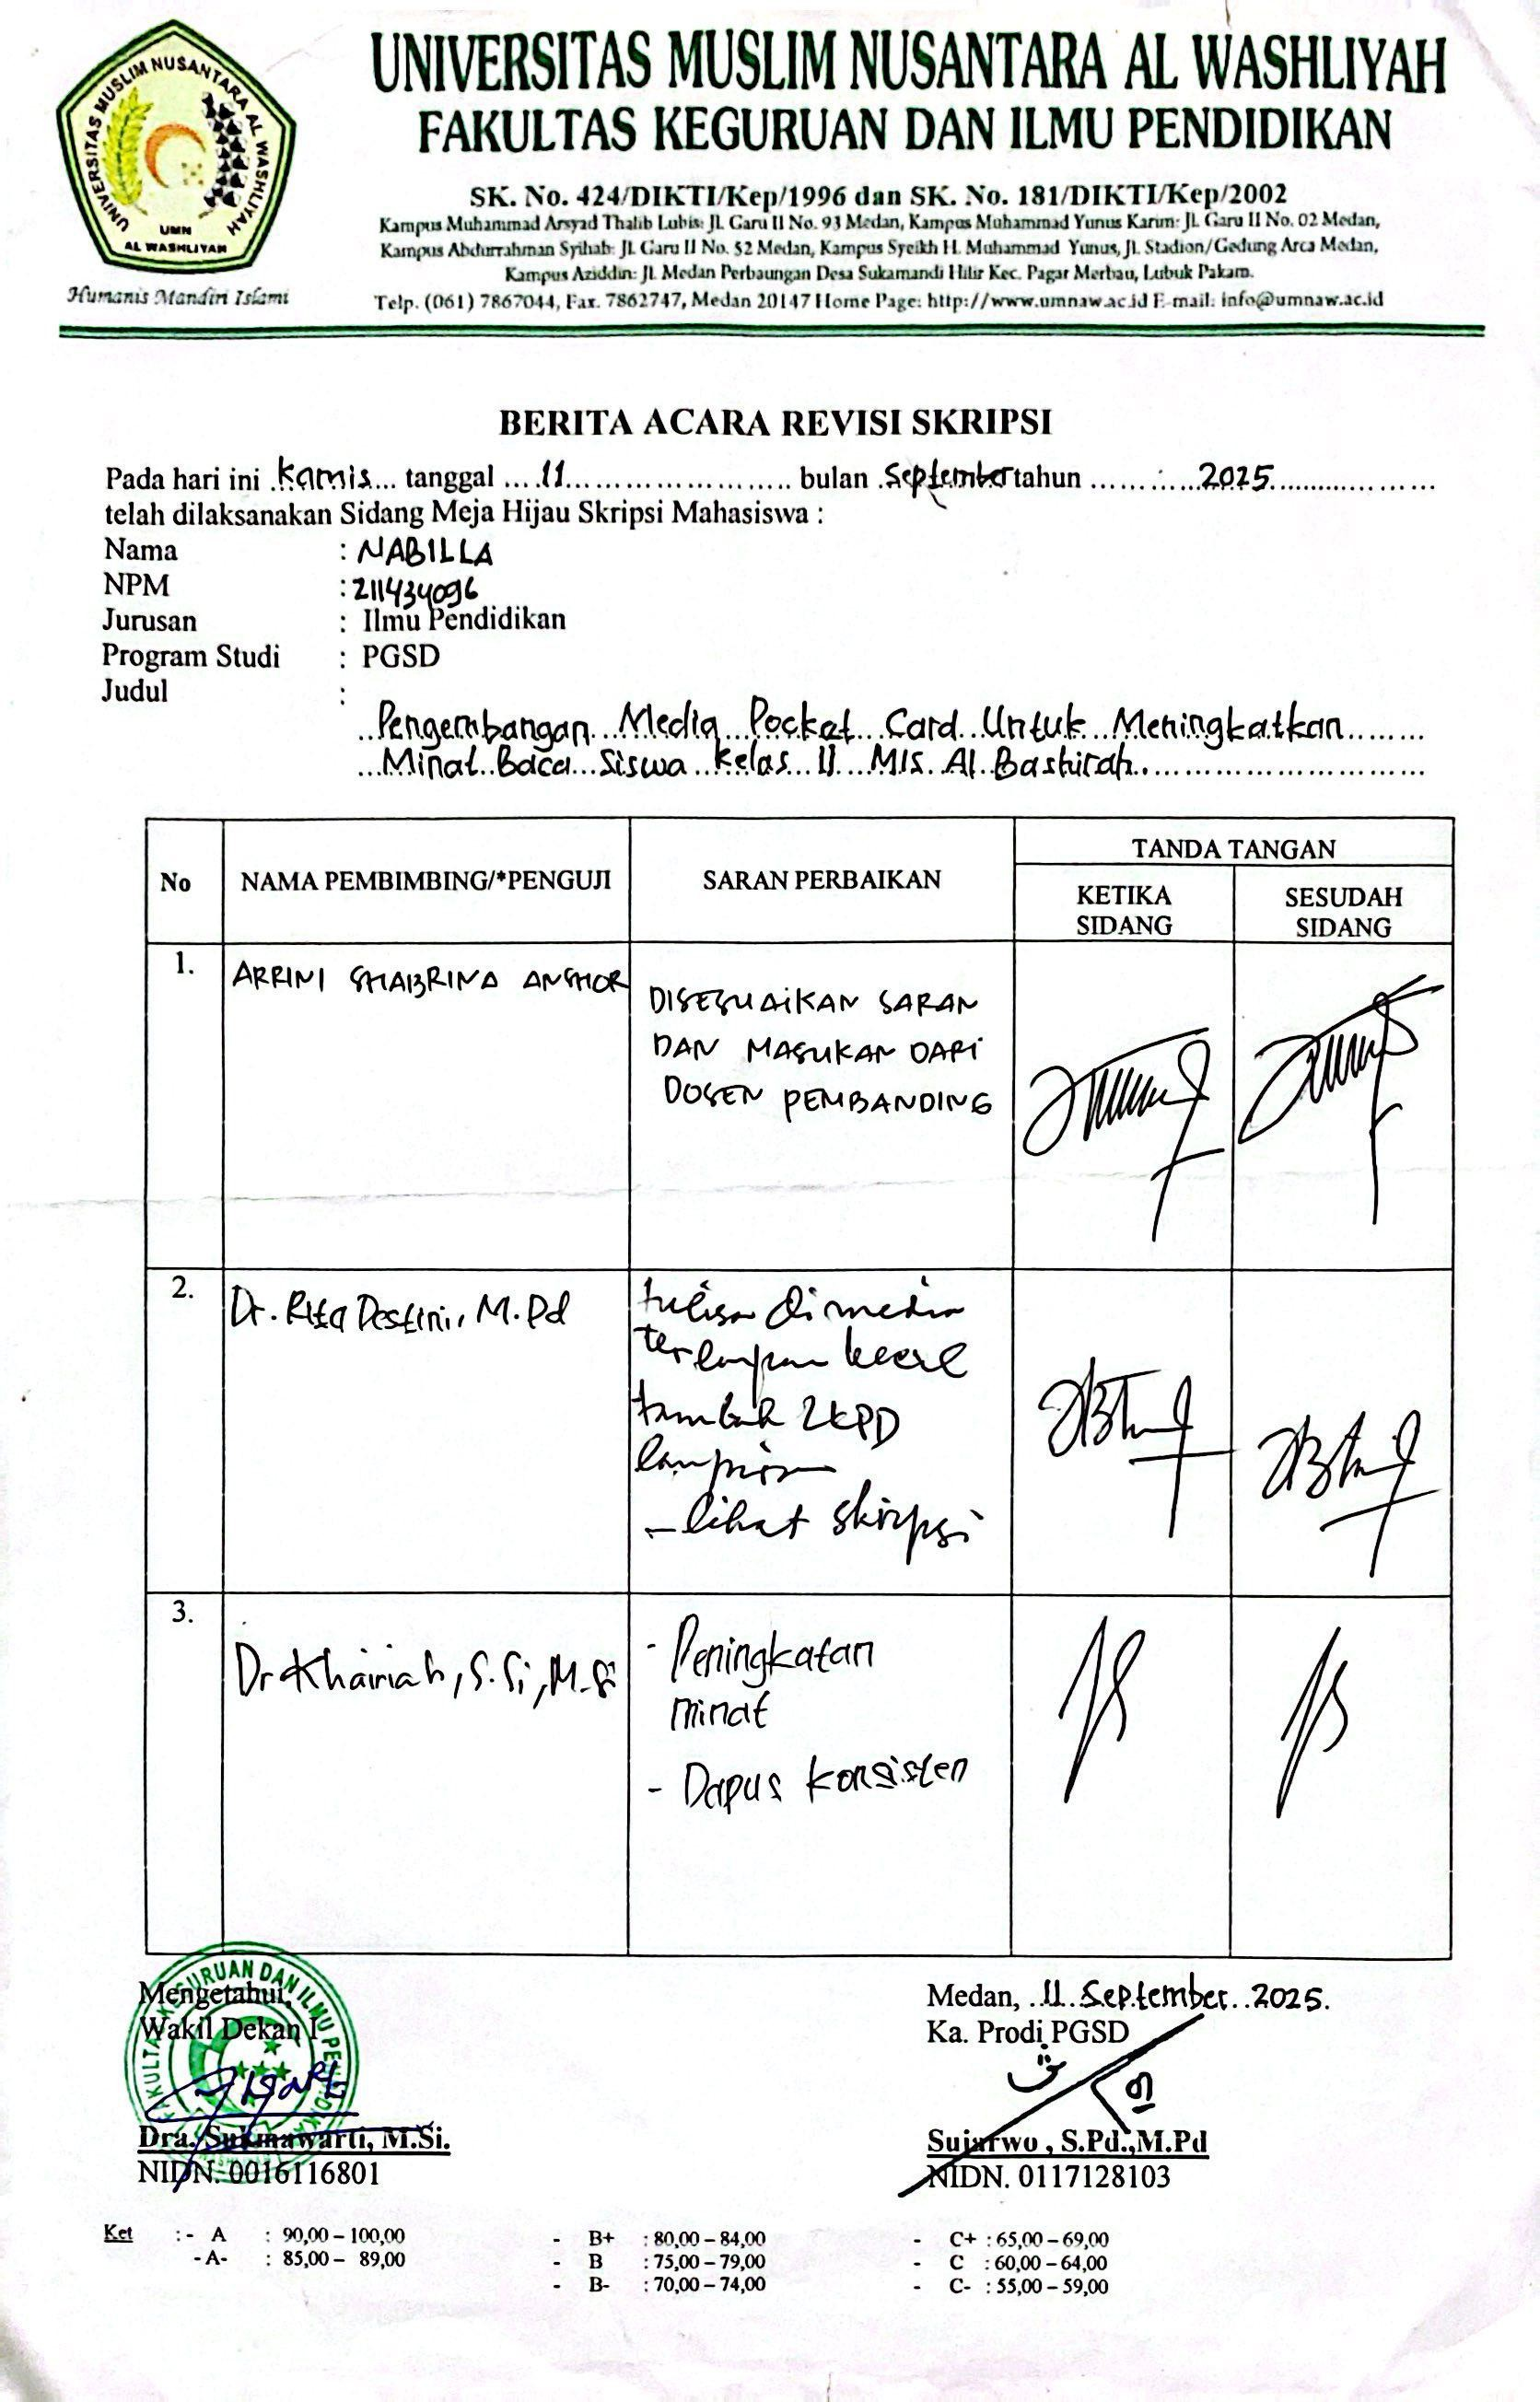 UNIVERSITAS MUSLIM NUSANTARA AL WASHLIYAH
UMN
AL WASHLIYAH
Humanis Mandiri Islami
UNIVERSITAS MUSLIM NUSANTARA AL WASHLIYAH
FAKULTAS KEGURUAN DAN ILMU PENDIDIKAN
SK. No. 424/DIKTI/Kep/1996 dan SK. No. 181/DIKTI/Kep/2002
Kampus Muhammad Arsyad Thalib Lubis: Jl. Garu II No. 93 Medan, Kampus Muhammad Yunus Karim: Jl. Garu II No. 02 Medan,
Kampus Abdurrahman Syihab: Jl. Garu II No. 52 Medan, Kampus Syeikh H. Muhammad Yunus, Jl. Stadion/Gedung Arca Medan,
Kampus Aziddin: Jl. Medan Perbaungan Desa Sukamandi Hilir Kec. Pagar Merbau, Lubuk Pakam.
Telp. (061) 7867044, Fax. 7862747, Medan 20147 Home Page: http://www.umnaw.ac.id E-mail: info@umnaw.ac.id
BERITA ACARA REVISI SKRIPSI
Pada hari ini Kamis tanggal 11 bulan September tahun 2025
telah dilaksanakan Sidang Meja Hijau Skripsi Mahasiswa :
Nama : NABILLA
NPM : 211434096
Jurusan : Ilmu Pendidikan
Program Studi : PGSD
Judul :
Pengembangan Media Pocket Card Untuk Meningkatkan
Minat Baca Siswa Kelas II MIS Al Bashirah
No NAMA PEMBIMBING/*PENGUJI SARAN PERBAIKAN TANDA TANGAN
KETIKA SIDANG SESUDAH SIDANG
1. ARRINI SHABRINA ANSHOR
DISESUAIKAN SARAN
DAN MASUKAN DARI
DOSEN PEMBANDING
2. Dr. Rita Destini, M.Pd
tulisan di media
terlampau kecil
tambah LKPD
lampiran
- lihat skripsi
3. Dr Khairiah, S.Si, M.Si
- Peningkatan
minat
- Dapus konsisten
Mengetahui,
Wakil Dekan I
Dra. Sukmawarti, M.Si.
NIDN. 0016116801
Medan, 11 September 2025.
Ka. Prodi PGSD
Sujarwo , S.Pd.,M.Pd
NIDN. 0117128103
Ket :- A : 90,00 – 100,00 - B+ : 80,00 – 84,00 - C+ : 65,00 – 69,00
- A- : 85,00 – 89,00 - B : 75,00 – 79,00 - C : 60,00 – 64,00
- B- : 70,00 – 74,00 - C- : 55,00 – 59,00